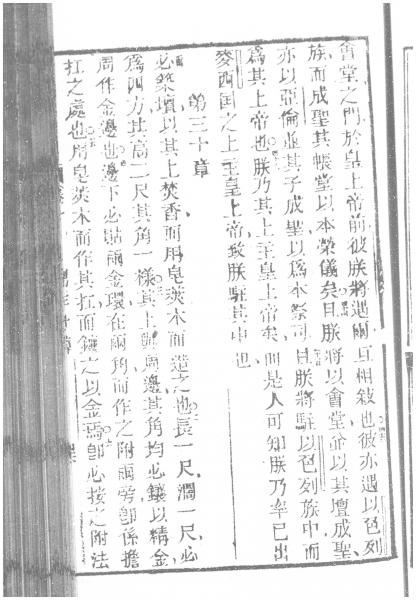 會堂之門於皇上帝前彼朕將遇爾且相敍也彼亦遇以色列
族而成聖其帳堂以本榮儀矣且朕將以會堂並以其壇成聖
亦以亞倫並其子成聖以爲本祭司且朕將駐以色列族中而
爲其上帝也朕乃其上主皇上帝矣則是人可知朕乃率已出
麥西國之上主皇上帝致朕駐其中也
第三十章
必築壇以其上焚香而用皂莢木而造之也長一尺濶一尺必
爲四方其高二尺其角一樣其上與周邊其角均必鑲以精金
周作金邊也邊下必貼兩金環在兩角而作之附兩旁卽係擔
扛之處也用皂莢木而作其扛而鑲之以金焉卽必接之附法